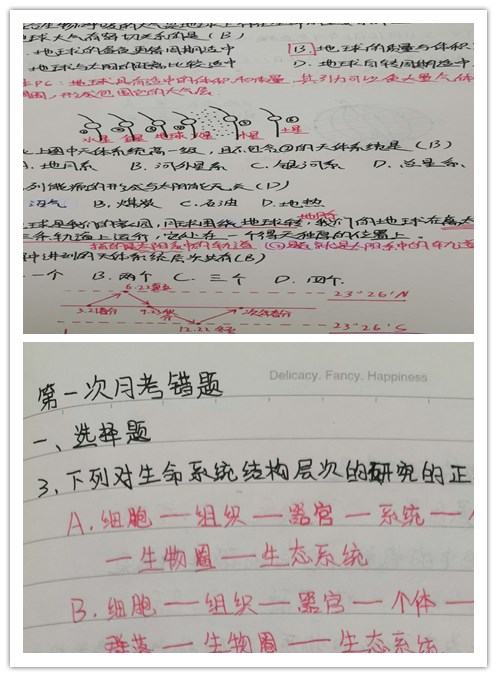 球大气有密切关系的是(B)
地球的昼夜更替周期适中 B.地球的质量与体积
地球与太阳的距离比较适中 D.地球自转周期适中
P6:地球具有适中的体积和质量 其引力可以使大量气体
周围,形成包围它的大气层
水星 金星 地球 火星 木星 土星
上图中天体系统高一级,且不包含③的天体系统是(B)
地月系 B.河外星系 C.银河系 D.总星系
列能源的形成与太阳能无关(D)
沼气 B.煤炭 C.石油 D.地热
地月系
球是我们的家园,月球围绕地球转,我们同地球在离太
三条轨道上运行,它处在一个得天独厚的位置上。
中讲到的天体系统层次共有(B)
一个 B.两个 C.三个 D.四个
6.22夏至 23°26′N
3.21春分 9.23秋分 次年春分
12.22冬至 23°26′S
Delicacy. Fancy. Happiness
第一次月考错题
一、选择题
3,下列对生命系统结构层次的研究的正
A.细胞—组织—器官—系统—
—生物圈—生态系统
B.细胞—组织—器官—个体—
群落—生物圈—生态系统